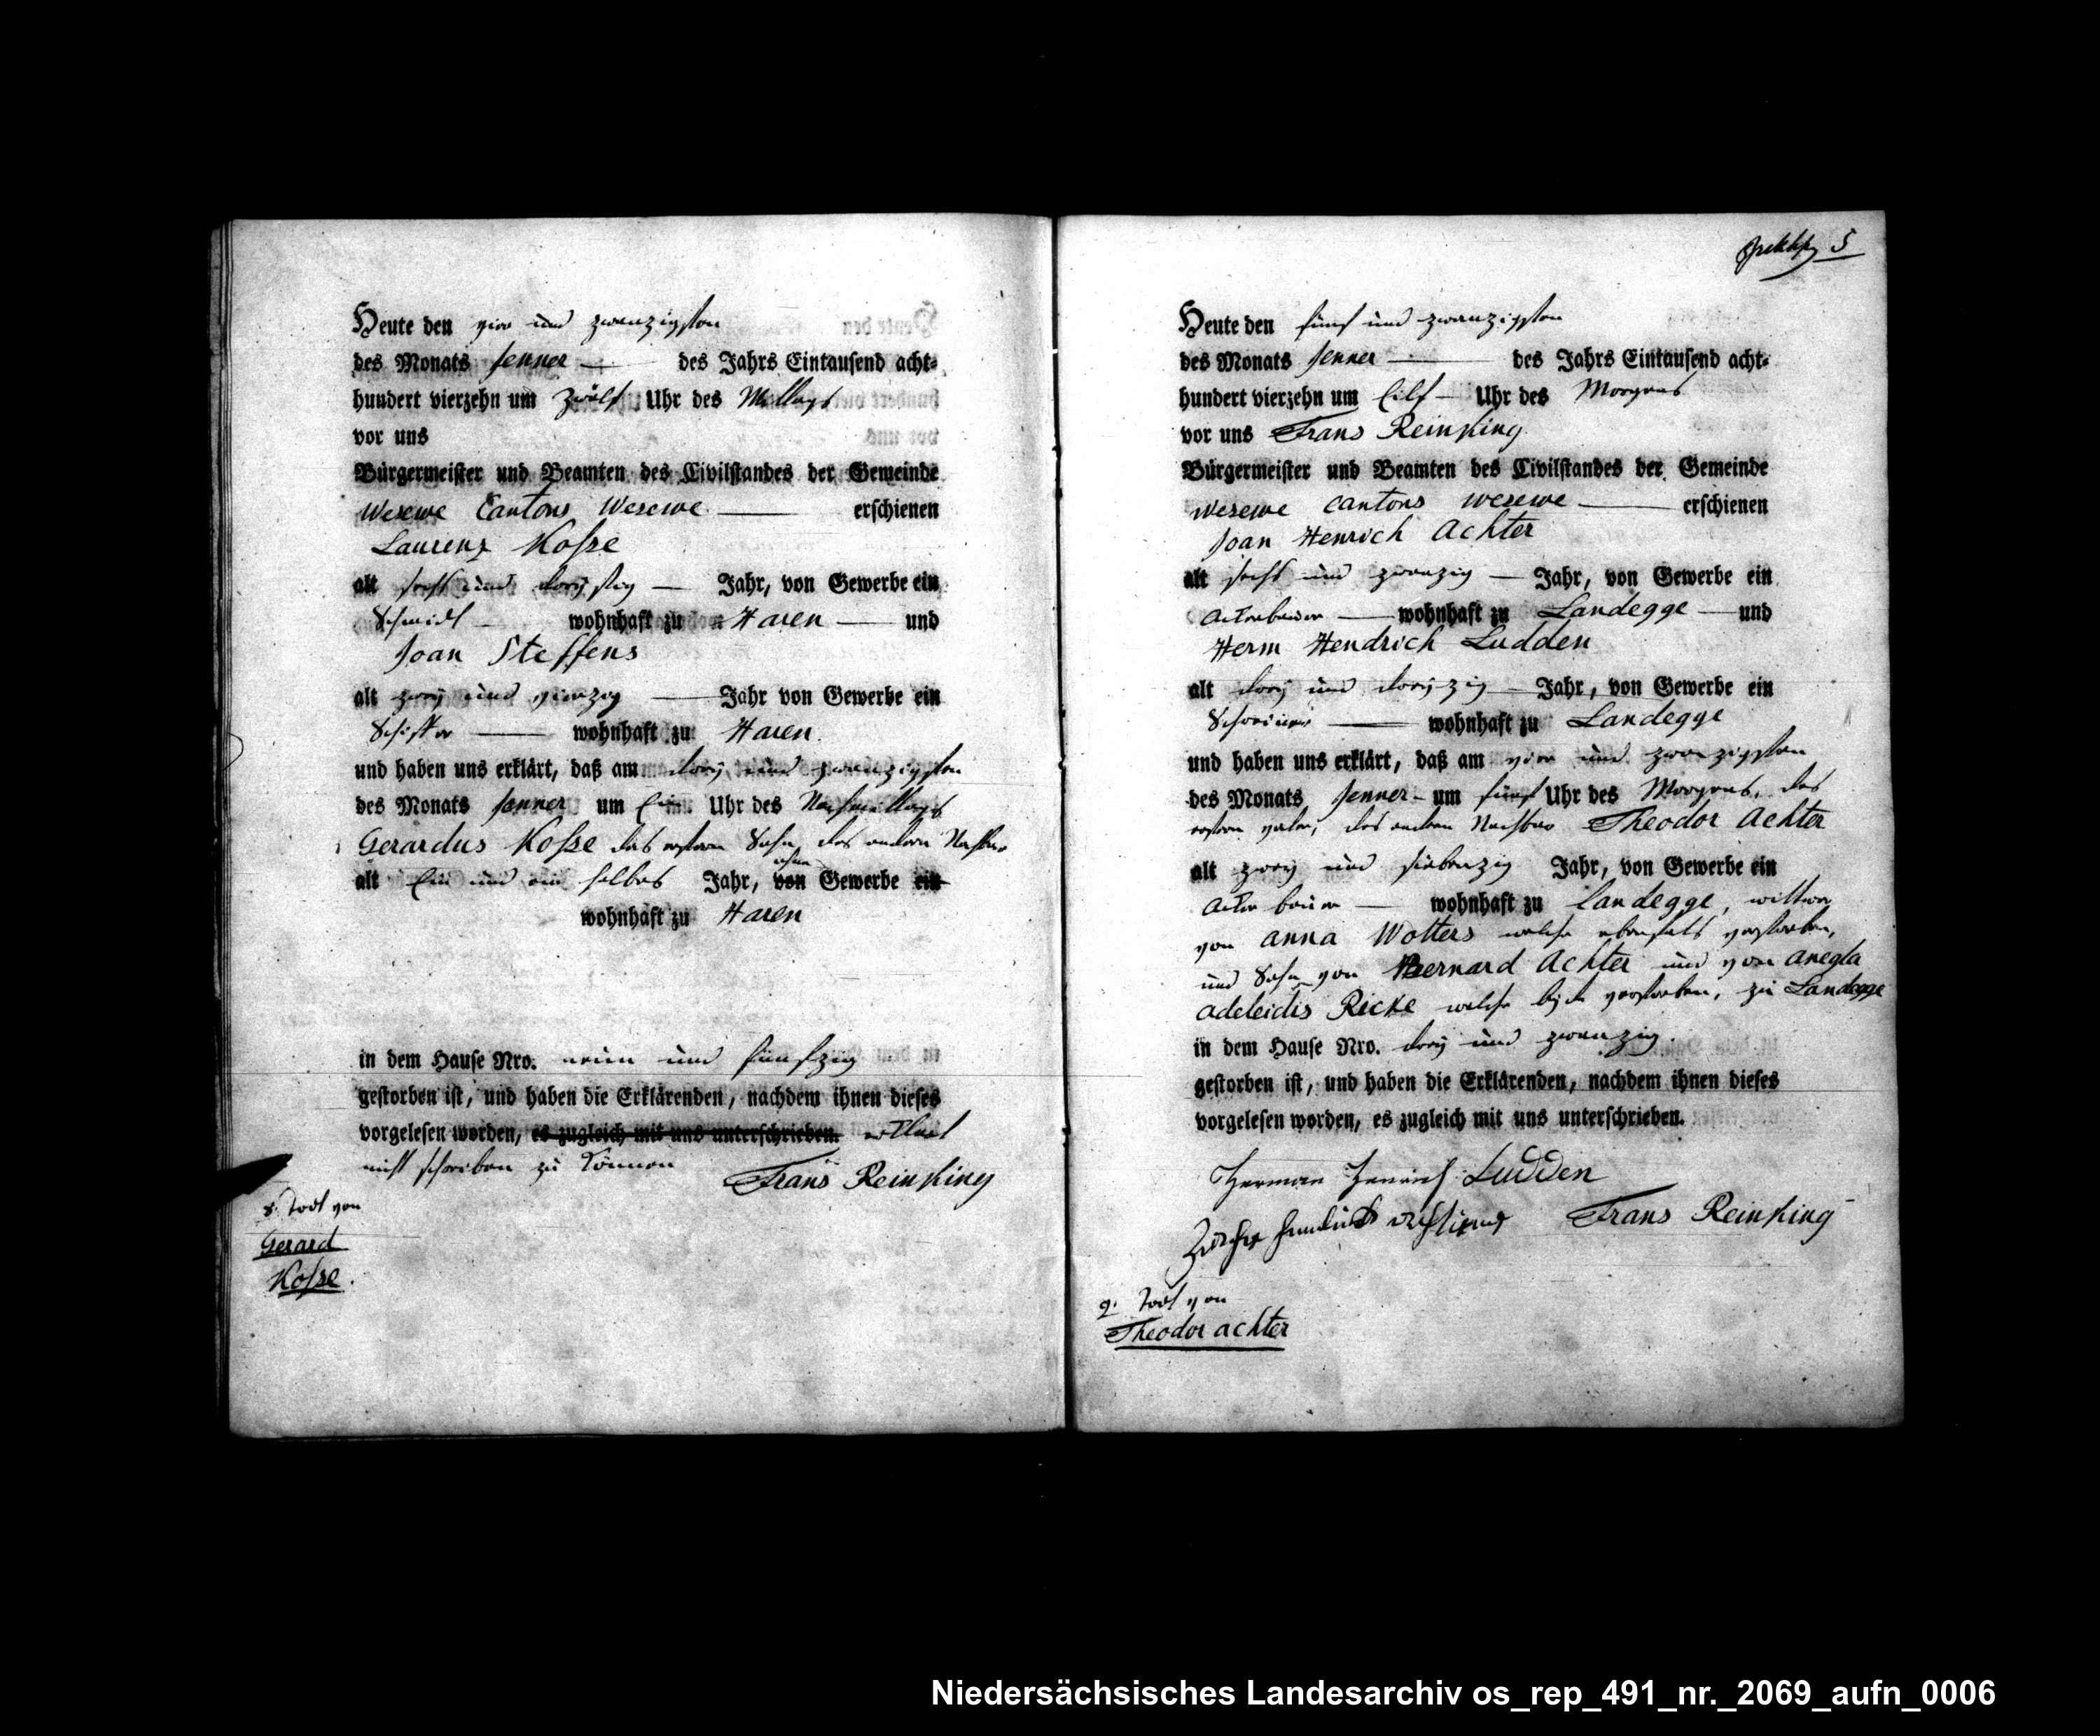 Heute den vier und zwanzigsten
des Monats Jenner — des Jahrs Eintausend acht-
hundert vierzehn um zwölf Uhr des Mittags
vor uns
Bürgermeister und Beamten des Civilstandes der Gemeinde
Wesewe Cantons Wesewe — erschienen
Laurenz Kosse
alt sechs und dreysig — Jahr, von Gewerbe ein
Schmidt wohnhaft zu Haren — und
Joan Steffens
alt zwey und vierzig — Jahr von Gewerbe ein
Schiffer — wohnhaft zu Haren.
und haben uns erklärt, daß am drey und zwanzigsten
des Monats Jenner um Ein Uhr des Nachmittags
Gerardus Kosse des erstern Sohn, des andern Nachbar
ohne
alt Ein und ein halbes Jahr, von Gewerbe ein
wohnhaft zu Haren
in dem Hause Nro. neun und fünfzig
gestorben ist, und haben die Erklärenden, nachdem ihnen dieses
vorgelesen worden, es zugleich mit uns unterschrieben. erklärt
nicht schreiben zu können Frans Reinking
8. Todt von
Gerard
Kosse.
5
Heute den fünf und zwanzigsten
des Monats Jenner — des Jahrs Eintausend acht-
hundert vierzehn um Eilf — Uhr des Morgens
vor uns Frans Reinking
Bürgermeister und Beamten des Civilstandes der Gemeinde
Wesewe cantons wesewe — erschienen
Joan Henrich Achter
alt sechs und zwanzig — Jahr, von Gewerbe ein
Ackerbauer — wohnhaft zu Landegge — und
Herm Hendrich Ludden
alt drey und dreyzig — Jahr, von Gewerbe ein
Schreiner — wohnhaft zu Landegge
und haben uns erklärt, daß am vier und zwanzigsten
des Monats Jenner - um fünf Uhr des Morgens, des
erstern vater, des andern Nachbar Theodor Achter
alt zwey und siebenzig Jahr, von Gewerbe ein
Acker bauer — wohnhaft zu Landegge, wittwer
von anna Wolters welche ebenfals verstorben,
und Sohn von Bernard Achter und von anegla
adeleidis Ricke welche beyde verstorben, zu Landegge
in dem Hause Nro. drey und zwanzig
gestorben ist, und haben die Erklärenden, nachdem ihnen dieses
vorgelesen worden, es zugleich mit uns unterschrieben.
Herman Henrich Ludden
Frans Reinking
9. Todt von
Theodor achter
Niedersächsisches Landesarchiv os_rep_491_nr._2069_aufn_0006